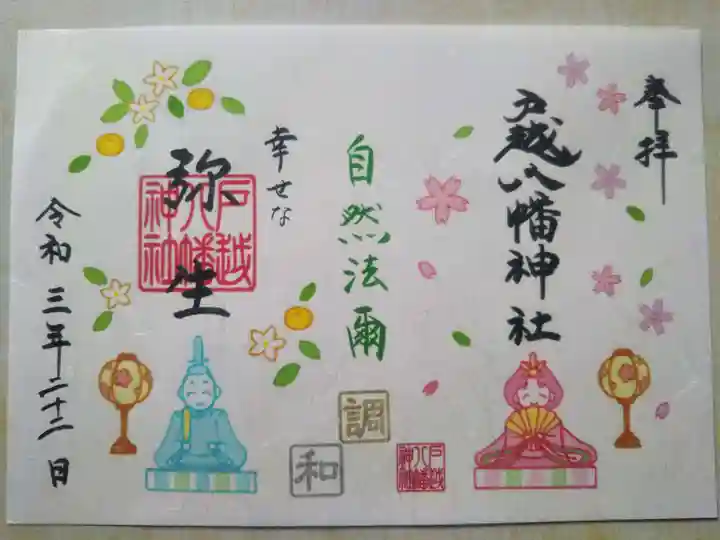 奉拝
戸越八幡神社
自然法爾
調
和
戸越八幡神社
幸せな
弥生
戸越八幡神社
令和三年二十二日